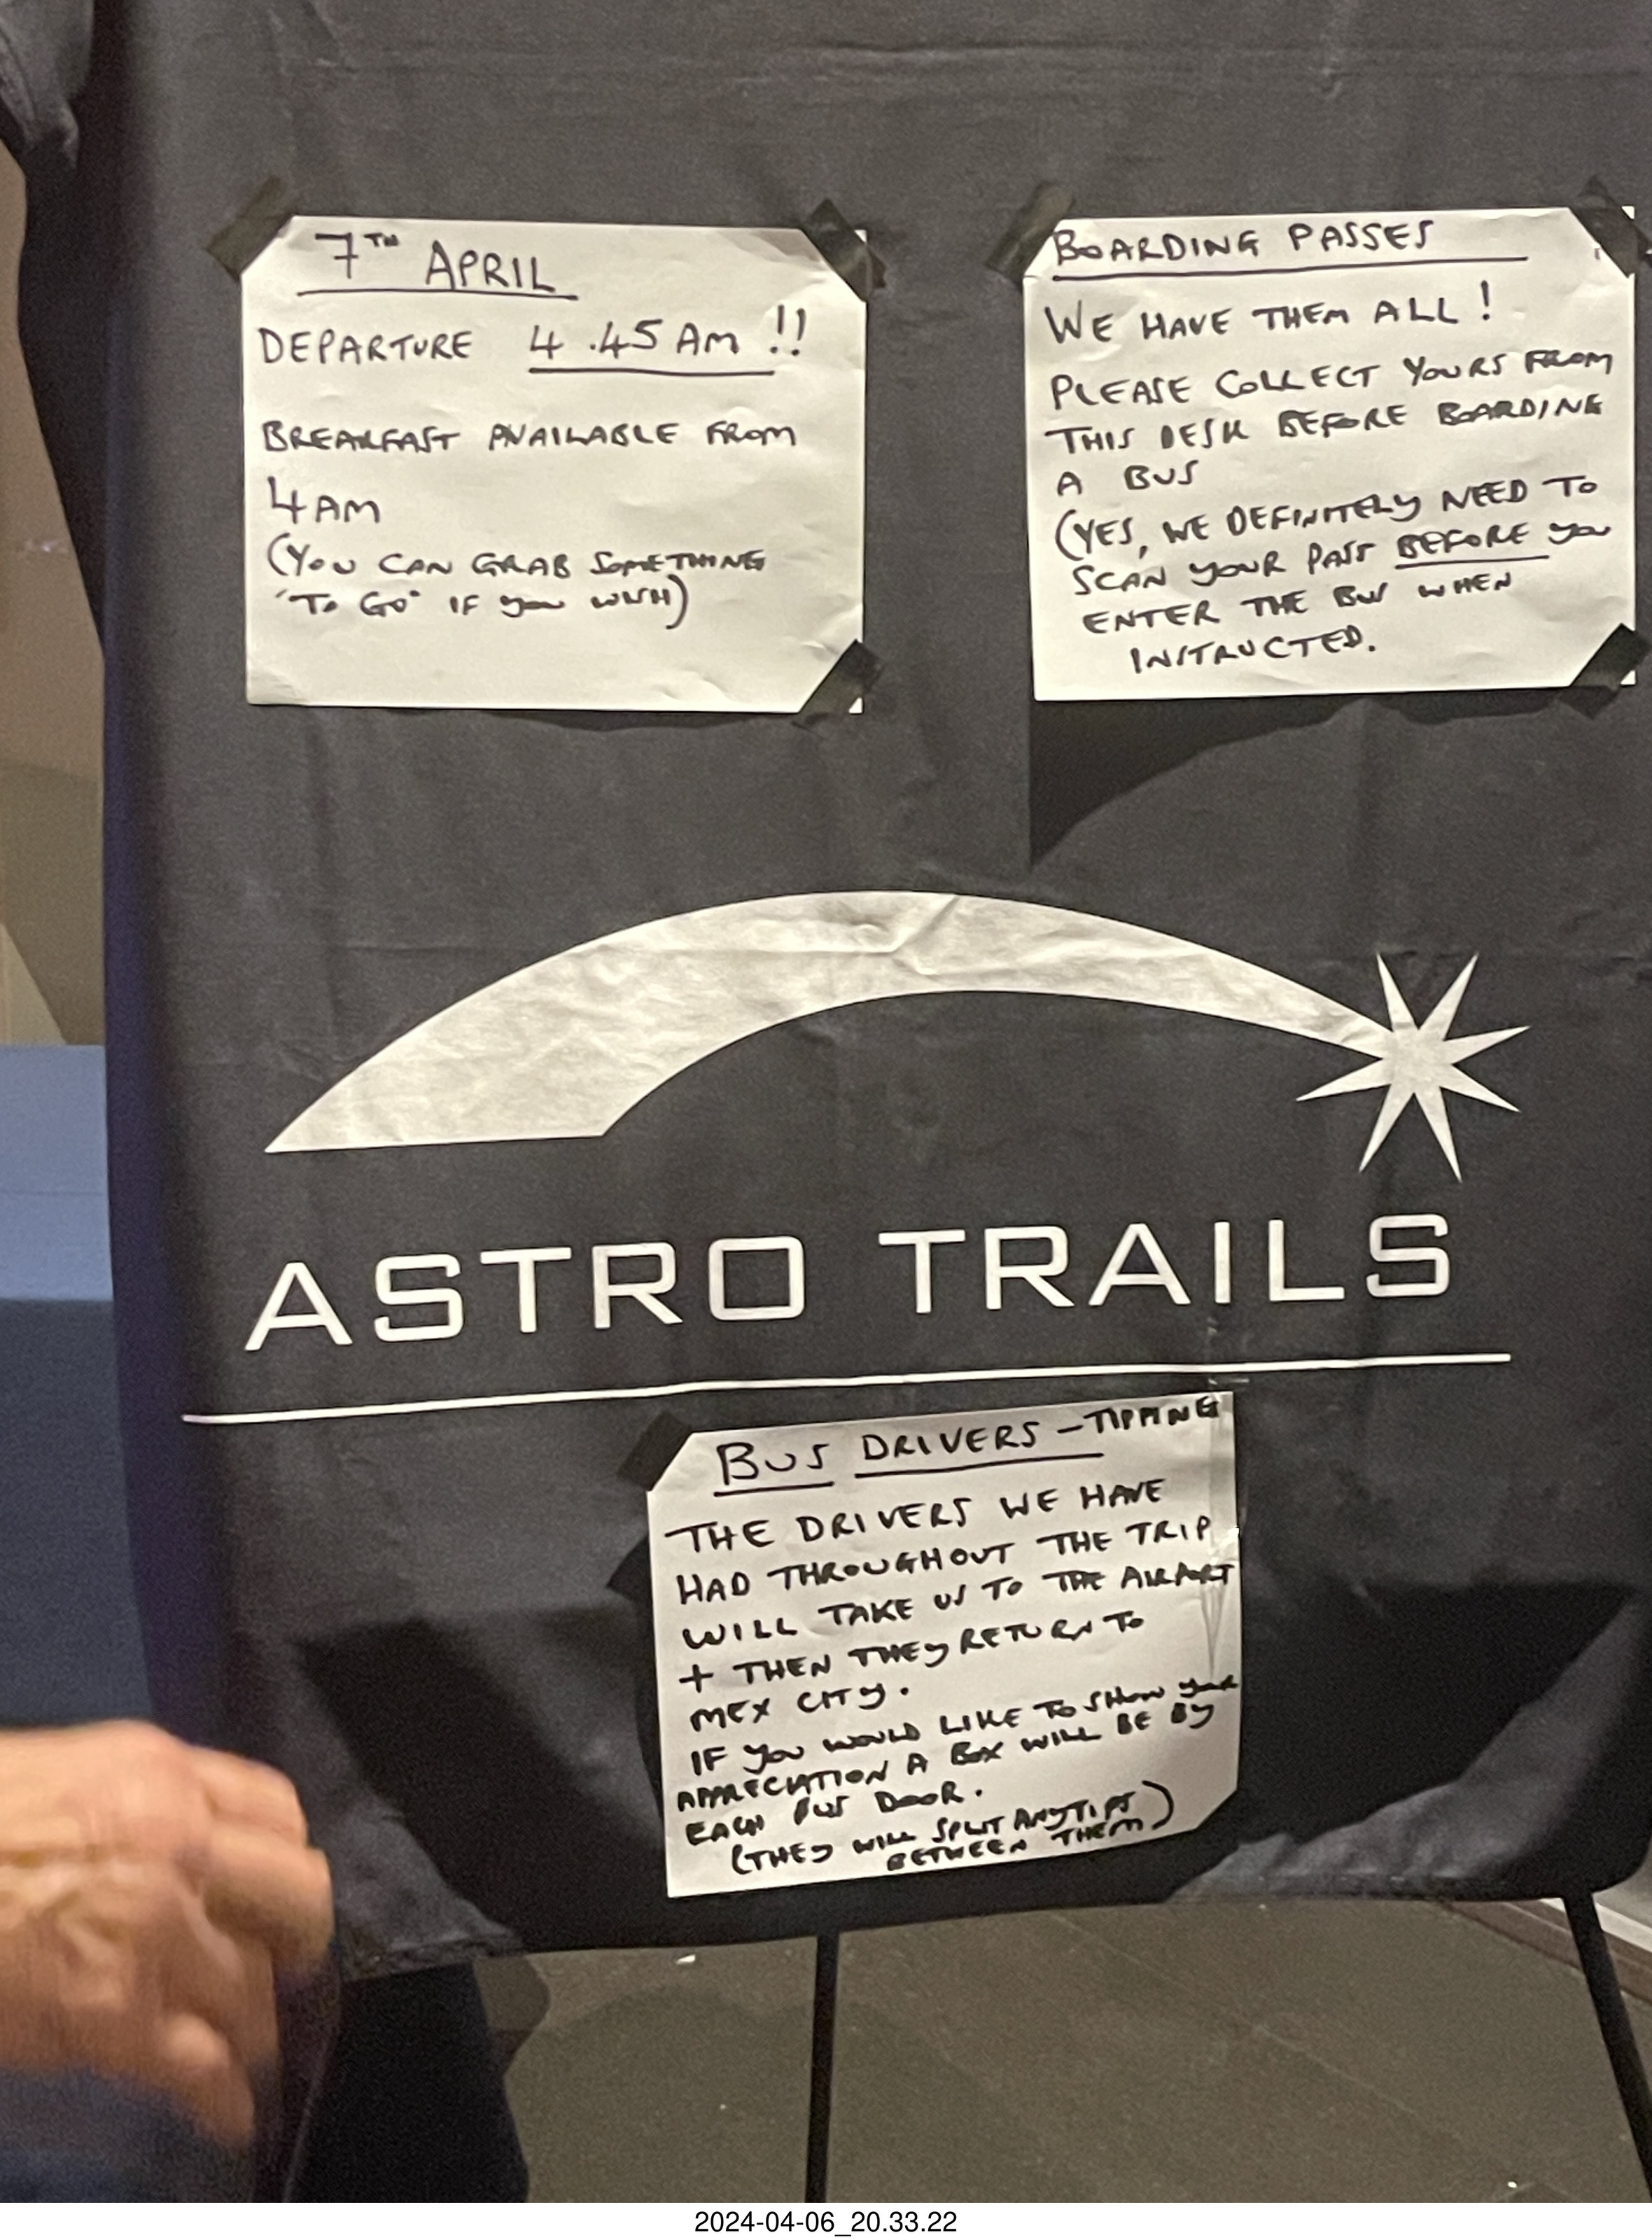 7TH APRIL
DEPARTURE 4.45AM!!
BREAKFAST AVAILABLE FROM
4AM
(YOU CAN GRAB SOMETHING
"TO GO" IF YOU WISH)
BOARDING PASSES
WE HAVE THEM ALL!
PLEASE COLLECT YOURS FROM
THIS DESK BEFORE BOARDING
A BUS
(YES, WE DEFINITELY NEED TO
SCAN YOUR PASS BEFORE YOU
ENTER THE BUS WHEN
INSTRUCTED.
ASTRO TRAILS
BUS DRIVERS - TIPPING
THE DRIVERS WE HAVE
HAD THROUGHOUT THE TRIP
WILL TAKE US TO THE AIRPORT
+ THEN THEY RETURN TO
MEX CITY.
IF YOU WOULD LIKE TO SHOW YOUR
APPRECIATION A BOX WILL BE BY
EACH BUS DOOR.
(THEY WILL SPLIT ANY TIPS
BETWEEN THEM)
2024-04-06_20.33.22